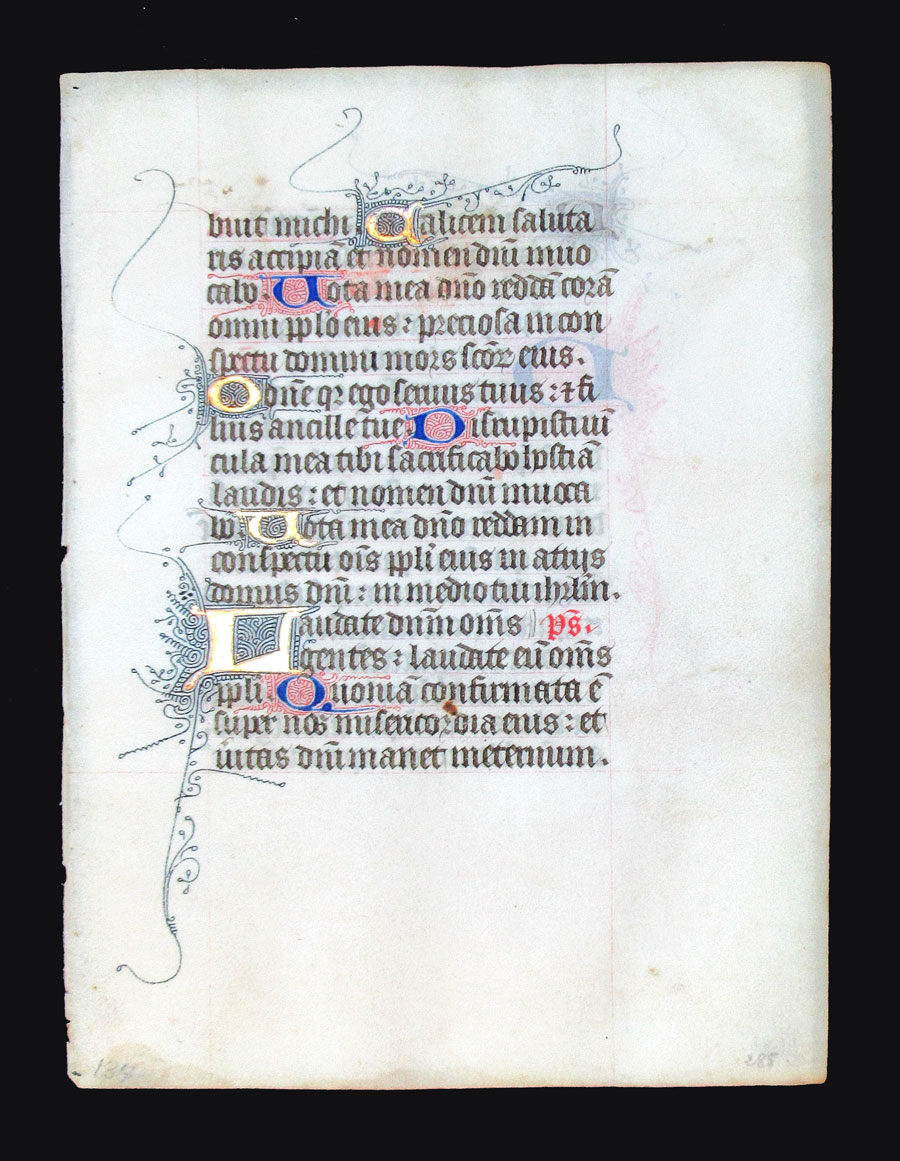 buit michi Calicem saluta
ris accipiā et nomen dn̄i inuo
cabo. Uota mea dn̄o reddā corā
omni pplo eius : preciosa in con
spectu domini mors scōꝝ eius.
O dn̄e qꝛ ego seruus tuus : ⁊ fi
lius ancille tue. Disrupisti uī
cula mea tibi sacrificabo hostiā
laudis : et nomen dn̄i inuoca
bo Uota mea dn̄o reddam in
conspectu oīs ppli eius in atrijs
domus dn̄i : in medio tui ihrlm̄.
Laudate dn̄m om̄s ps̄.
gentes : laudate eū om̄s
ppli Quoniā confirmata ē
super nos misericordia eius : et
ūitas dn̄i manet ineternum.
134 288.